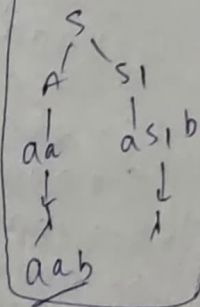 S
A S1
aa aS1b
λ λ
aab